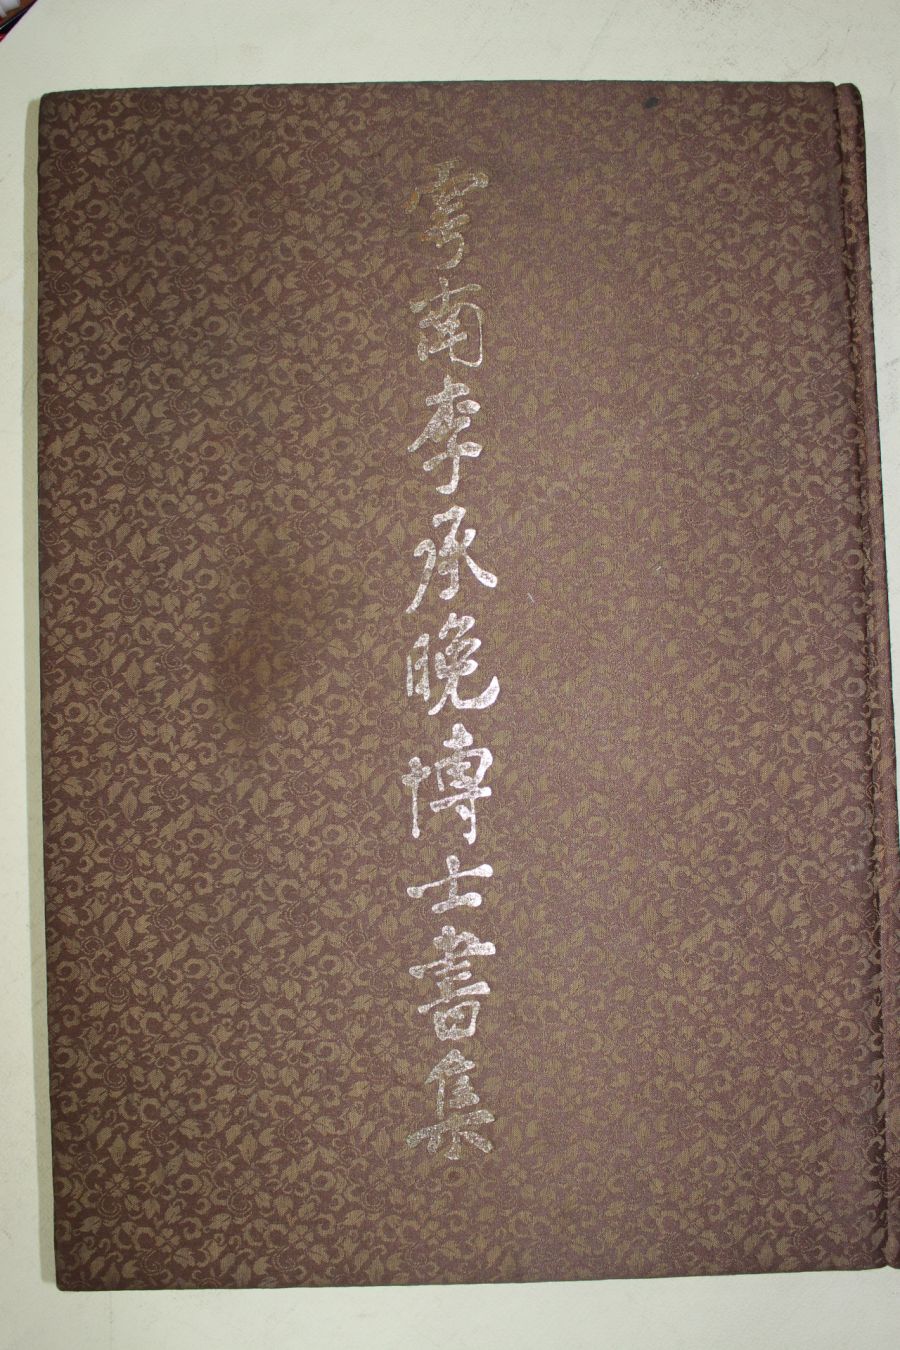 雩南李承晩博士書集